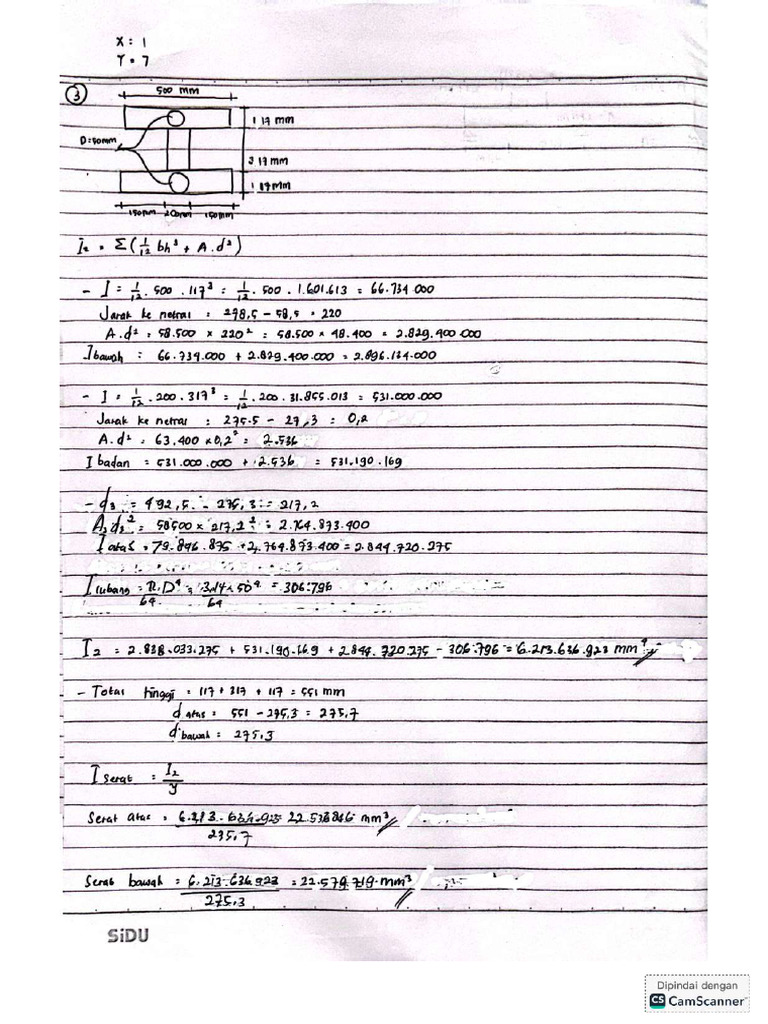 X = 1
Y = 7
3
500 mm
117 mm
D=50mm
317 mm
117 mm
150mm 200mm 150mm
I₂ = Σ(1/12 bh³ + A.d²)
- I = 1/12 . 500 . 117³ = 1/12 . 500 . 1.601.613 = 66.734.000
Jarak ke netral : 278,5 - 58,5 = 220
A.d² = 58.500 × 220² = 58.500 × 48.400 = 2.829.400.000
I bawah = 66.734.000 + 2.829.400.000 = 2.896.134.000
- I = 1/12 . 200 . 317³ = 1/12 . 200 . 31.855.013 = 531.000.000
Jarak ke netral : 275.5 - 27,3 = 0,2
A.d² = 63.400 × 0,2² = 2.536
I badan = 531.000.000 + 2.536 = 531.190.169
- d₃ = 492,5 - 275,3 = 217,2
A₃d₃² = 58500 × 217,2² = 2.764.873.400
I atas = 79.846.875 + 2.764.873.400 = 2.844.720.275
I lubang = π.D⁴/64 = 3.14 × 50⁴/64 = 306.796
I₂ = 2.838.033.275 + 531.190.169 + 2.844.720.275 - 306.796 = 6.213.636.923 mm⁴
- Total tinggi = 117 + 317 + 117 = 551 mm
d atas = 551 - 275,3 = 275,7
d bawah = 275,3
I serat = I₂/y
Serat atas = 6.213.636.923/275,7 22.536846 mm³
Serat bawah = 6.213.636.923/275.3 = 22.579.719 mm³
SiDU
Dipindai dengan
CS CamScanner